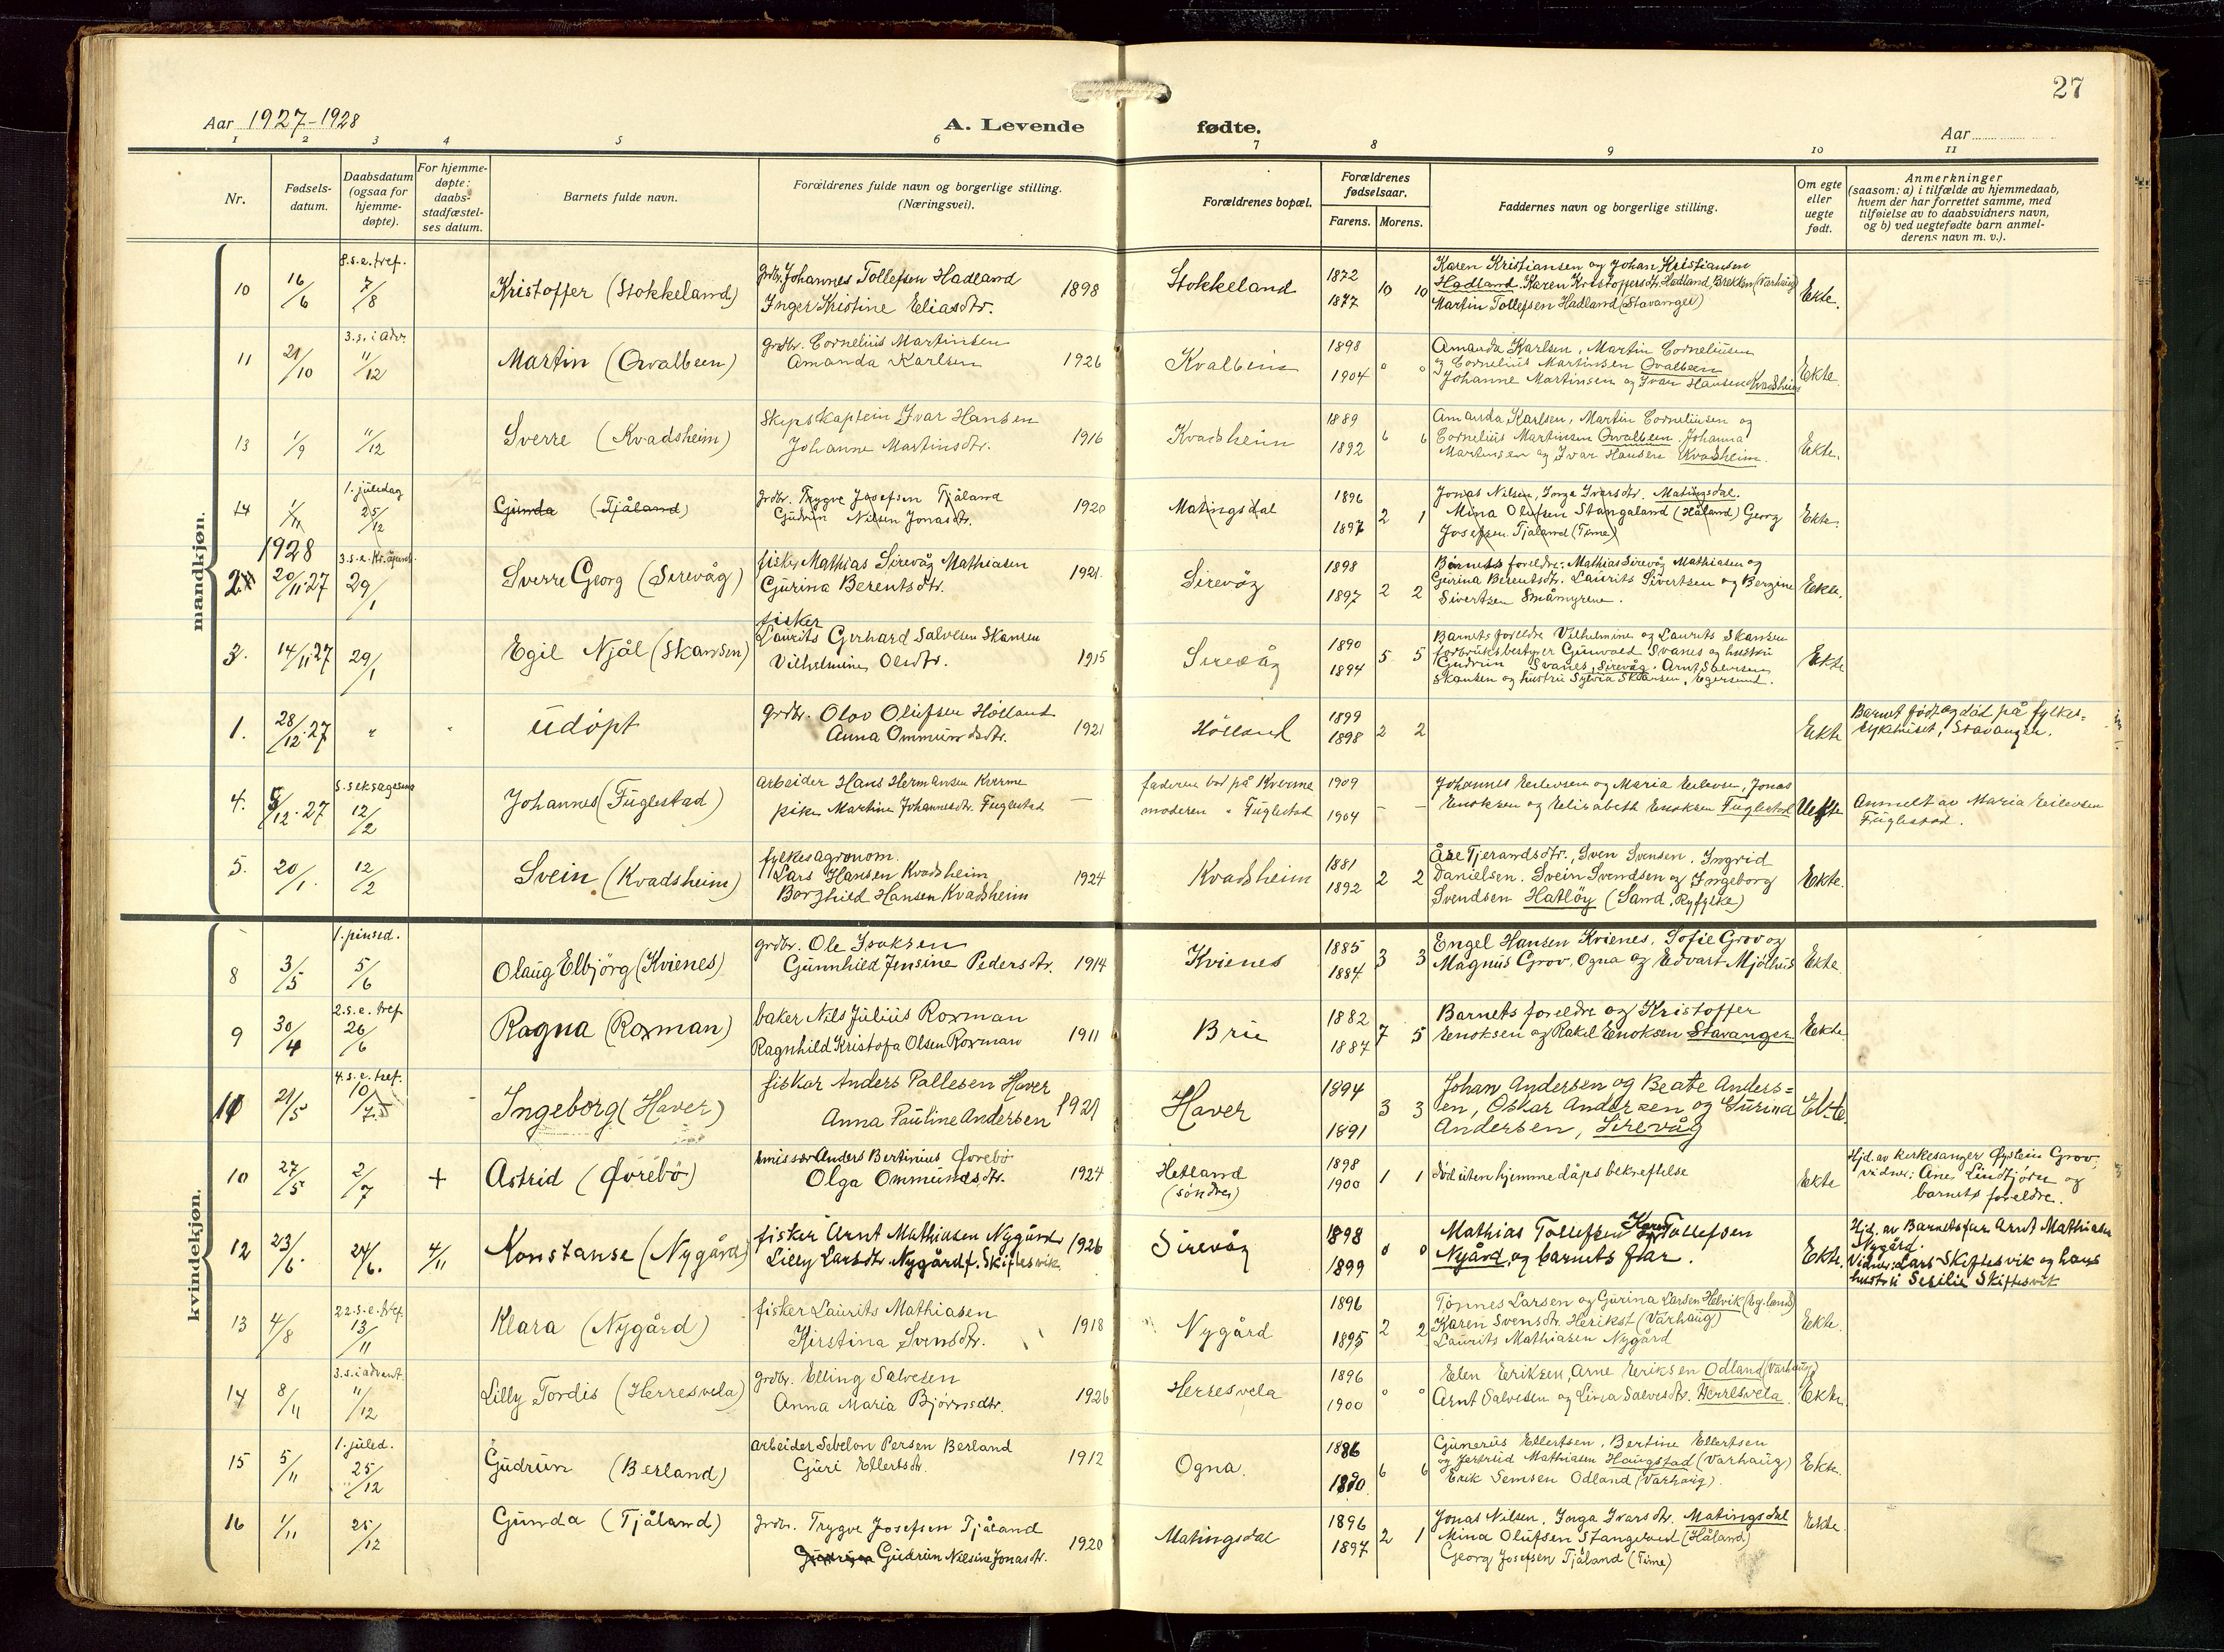 27
Aar 1927-1928
A. Levende fødte.
Aar
1 2 3 4 5 6 7 8 9 10 11
Nr.
Fødsels-
datum.
Daabsdatum
(ogsaa for
hjemme-
døpte).
For hjemme-
døpte:
daabs-
stadfæstel-
ses datum.
Barnets fulde navn.
Forældrenes fulde navn og borgerlige stilling.
(Næringsvei).
Forældrenes bopæl.
Forældrenes
fødselsaar.
Farens. Morens.
Faddernes navn og borgerlige stilling.
Om egte
eller
uegte
født.
Anmerkninger
(saasom: a) i tilfælde av hjemmedaab,
hvem der har forrettet samme, med
tilføielse av to daabsvidners navn,
og b) ved uegtefødte barn anmel-
derens navn m. v.).
mandkjøn.
8.s.e.tref.
10 16/6 7/8 Kristoffer (Stokkeland)
grdbr. Johannes Tollefsen Hadland
Inger Kristine Eliasdtr. 1898
Stokkeland 1872 1877 10 10
Karen Kristiansen og Johan Kristiansen
Hadland. Karen Kristoffersdtr. Hadland, Brekken (Varhaug)
Martin Tollefsen Hadland (Stavanger)
Ekte.
3.s. i adv.
11 21/10 11/12 Martin (Qvalbeen)
grdbr. Cornelius Martinsen
Amanda Karlsen 1926
Kvalbein 1898 1904 0 0
Amanda Karlsen, Martin Corneliusen
og Cornelius Martinsen Qvalbeen
Johanne Martinsen og Ivar Hansen Kvadsheim
Ekte.
13 1/9 11/12 Sverre (Kvadsheim)
Skipskaptein Ivar Hansen
Johanne Martinsdtr. 1916
Kvadsheim 1889 1892 6 6
Amanda Karlsen, Martin Corneliusen og
Cornelius Martinsen Qvalbeen. Johanna
Martinsen og Ivar Hansen Kvadsheim.
Ekte.
1. juledag
14 1/11 25/12 Gunda (Tjåland)
grdbr. Trygve Josefsen Tjåland
Gudrun Nilsen Jonasdtr. 1920
Matingsdal 1896 1897 2 1
Jonas Nilsen, Inga Ivarsdtr. Matingsdal.
Mina Olufsen Stangaland (Håland) Georg
Josefsen Tjåland (Time)
Ekte.
1928
3.s.e. Kr. åpenb.
2 20/11.27 29/1 Sverre Georg (Sirevåg)
fisker Mathias Sirevåg Mathiasen
Gurina Berentsdtr. 1921
Sirevåg 1898 1897 2 2
Barnets foreldre: Mathias Sirevåg Mathiasen og
Gurina Berentsdtr. Laurits Sivertsen og Bergine
Sivertsen Småmyrene.
Ekte.
3. 14/11.27 29/1 Egil Njål (Skansen)
fisker
Laurits Gerhard Salvesen Skansen
Vilhelmine Olsdtr. 1915
Sirevåg 1890 1894 5 5
Barnets foreldre Vilhelmine og Laurits Skansen
forbruksbestyrer Gunvald Svanes og hustru
Gudrun Svanes, Sirevåg. Arnt Salvesen
Skansen og hustru Sylvia Skansen, Egersund.
Ekte
1. 28/12.27 " " udøpt
grdbr. Olav Olufsen Hölland
Anna Ommundsdtr. 1921
Hölland 1899 1898 2 2
Ekte
Barnet født og död på fylkes-
sykehuset, Stavanger.
S. seksagesima
4. 5/12.27 12/2 Johannes (Fuglestad)
arbeider Hans Hermansen Kverme
pike Martine Johannesdtr. Fuglestad —
faderen bor på Kverme
moderen " Fuglestad
1909 1904 — —
Johannes Eilevsen og Maria Eilevsen, Jonas
Enoksen og Elisabeth Enoksen Fuglestad
Uekte
Anmelt av Maria Eilevsen
Fuglestad.
5. 20/1. 12/2 Svein (Kvadsheim)
fylkesagronom.
Lars Hansen Kvadsheim
Borghild Hansen Kvadsheim 1924
Kvadsheim 1881 1892 2 2
Åse Tjerandsdtr., Sven Svensen, Ingrid
Danielsen. Svein Svendsen og Ingeborg
Svendsen Hatlöy (Sand, Ryfylke)
Ekte.
kvindekjøn.
1. pinsed.
8 3/5 5/6 Olaug Elbjörg (Kvienes)
grdbr. Ole Isaksen
Gunnhild Jensine Pedersdtr. 1914
Kvienes 1885 1884 3 3
Engel Hansen Kvienes, Sofie Grov og
Magnus Grov, Ogna og Edvart Mjölhus
Ekte.
2.s.e.tref.
9 30/4 26/6 Ragna (Roxman)
baker Nils Julius Roxman
Ragnhild Kristofa Olsen Roxman 1911
Brue 1882 1887 7 5
Barnets foreldre og Kristoffer
Enoksen og Rakel Enoksen Stavanger
Ekte
4.s.e.tref.
11 21/5 10/7 Ingeborg (Haver)
fisker Anders Pallesen Haver
Anna Pauline Andersen 1921
Haver 1894 1891 3 3
Johan Andersen og Beate Anders=
en, Oskar Andersen og Gurina
Andersen, Sirevåg
Ekte.
10 27/5 2/7 + Astrid (Øvrebö)
emissær Anders Bertinius Øvrebö
Olga Ommundsdtr. 1924
Hetland
(söndre) 1898 1900 1 1
Död uten hjemmedåps bekreftelse
Ekte
Hjd. av kirkesanger Øystein Grov,
vidner: Ane Lindtjörn og
barnets foreldre.
12 23/6 24/6. 4/11 Konstanse (Nygård)
fisker Arnt Mathiasen Nygård
Lilly Larsdtr. Nygård f. Skiftesvik 1926
Sirevåg 1898 1899 0 0
Mathias Tollefsen Karen Tollefsen
Nygård, og barnets far.
Ekte.
Hjd. av Barnets far Arnt Mathiasen
Nygård.
Vidner: Lars Skiftesvik og hans
hustru Sesilie Skiftesvik
22.s.e.tref.
13 4/8 13/11 Klara (Nygård)
fisker Laurits Mathiasen
Kirstina Svensdtr. 1918
Nygård 1896 1895 2 2
Tønnes Larsen og Gurina Larsen Helvik (Eg.land)
Karen Svensdtr. Herikst (Varhaug)
Laurits Mathiasen Nygård
Ekte.
3.s. i advent.
14 8/11 11/12 Lilly Tordis (Herresvela)
grdbr. Elling Salvesen
Anna Maria Bjørnsdtr. 1926
Herresvela 1896 1900 0 0
Elen Eriksen, Arne Eriksen Odland (Varhaug)
Arnt Salvesen og Lina Salvesdtr. Herresvela
Ekte.
1. juled.
15 5/11 25/12 Gudrun (Berland)
arbeider Sebelon Persen Berland
Guri Ellertsdtr. 1912
Ogna. 1886 1890 6 6
Gunerius Ellertsen, Bertine Ellertsen
og Jertrud Mathiasen Haugstad (Varhaug)
Erik Semsen Odland (Varhaug).
Ekte.
16 1/11 25/12 Gunda (Tjåland)
grdbr. Trygve Josefsen Tjåland
Gudrun Nilsine Jonasdtr. 1920
Matingsdal 1896 1897 2 1
Jonas Nilsen, Inga Ivarsdtr. Matingsdal
Mina Olufsen Stangeland (Håland)
Georg Josefsen Tjåland (Time)
Ekte